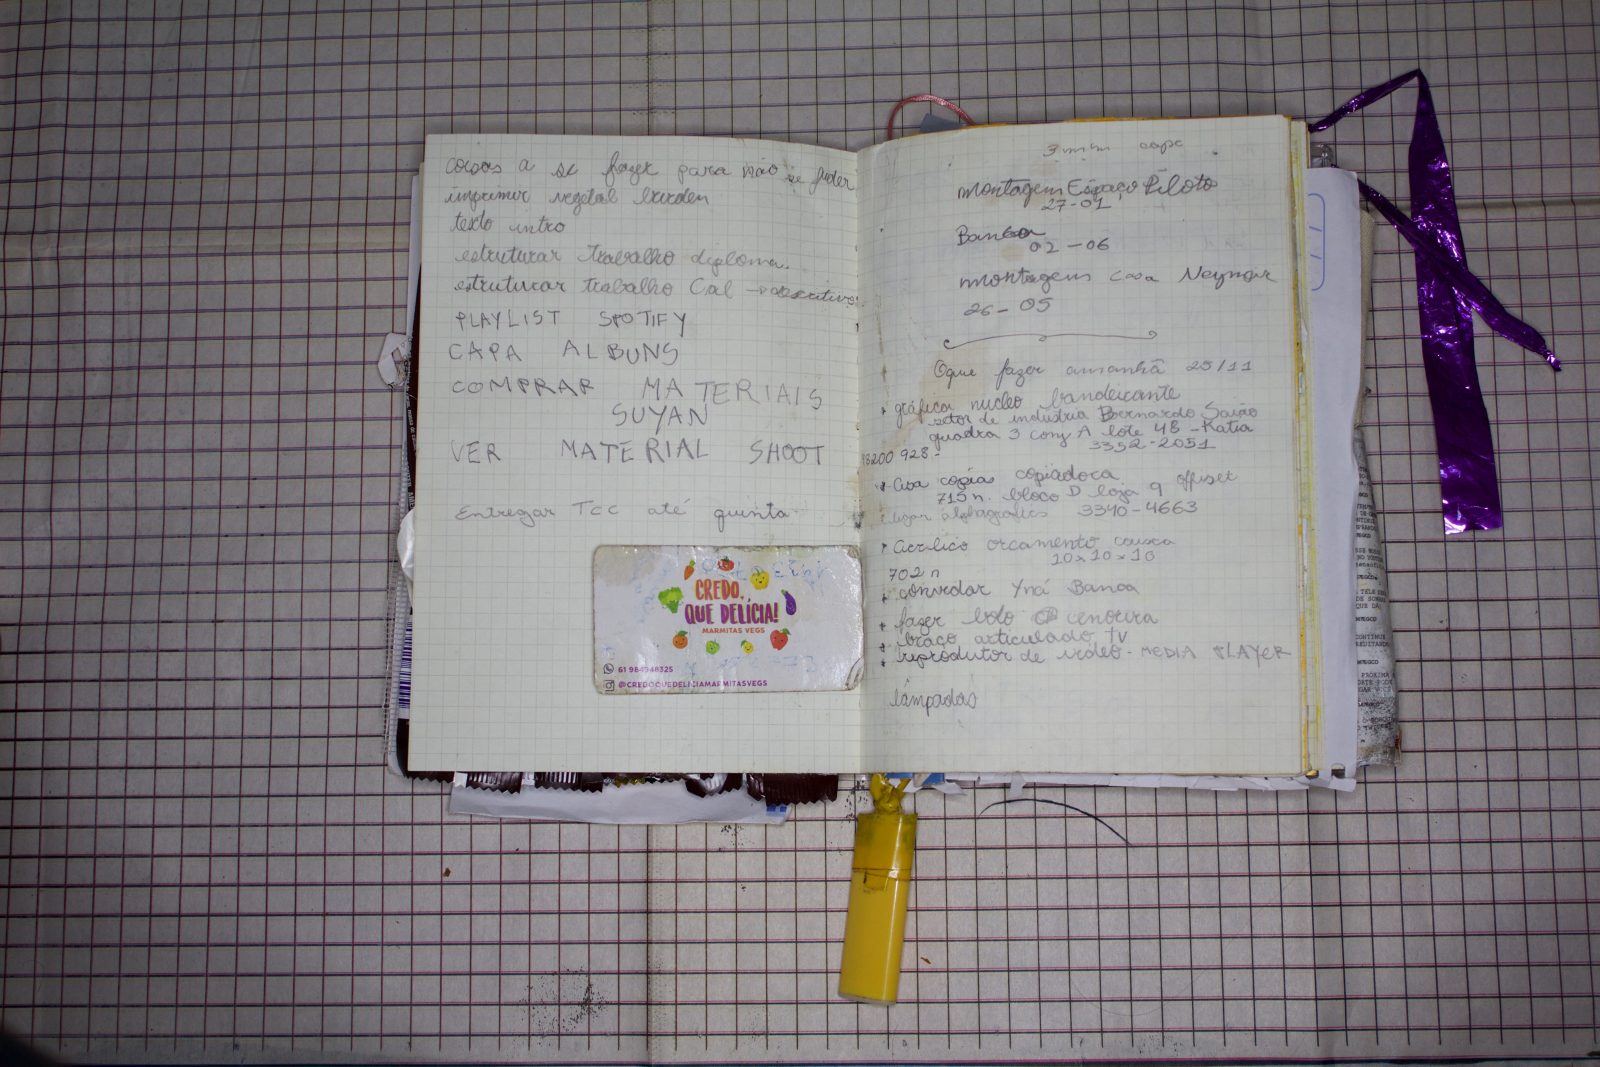 coisas a se fazer para não se fuder
imprimir vegetal burden
texto intro
estruturar trabalho diploma.
estruturar trabalho Cal
PLAYLIST SPOTIFY
CAPA ALBUNS
COMPRAR MATERIAIS
SUYAN
VER MATERIAL SHOOT
Entregar TCC até quinta
CREDO,
QUE DELÍCIA!
MARMITAS VEGS
@CREDOQUEDELICIAMARMITASVEGS
3 mim capa
montagem Espaço Piloto
27-01
Banca
02-06
montagem casa Neymar
26-05
Oque fazer amanhã 25/11
gráfica nucleo bandeirante
setor de indústria Bernardo Saião
quadra 3 conj A lote 48 - Katia
3352-2051
98200 928-
Casa copias copiadora
715 n. bloco D loja 9 offset
ligar alphagrafics 3340-4663
Acrilico orcamento caixa
10x10x10
702 n
convidar Yná Banca
fazer bolo cenoura
braço articulado tv
reprodutor de vídeo - MEDIA PLAYER
lâmpadas